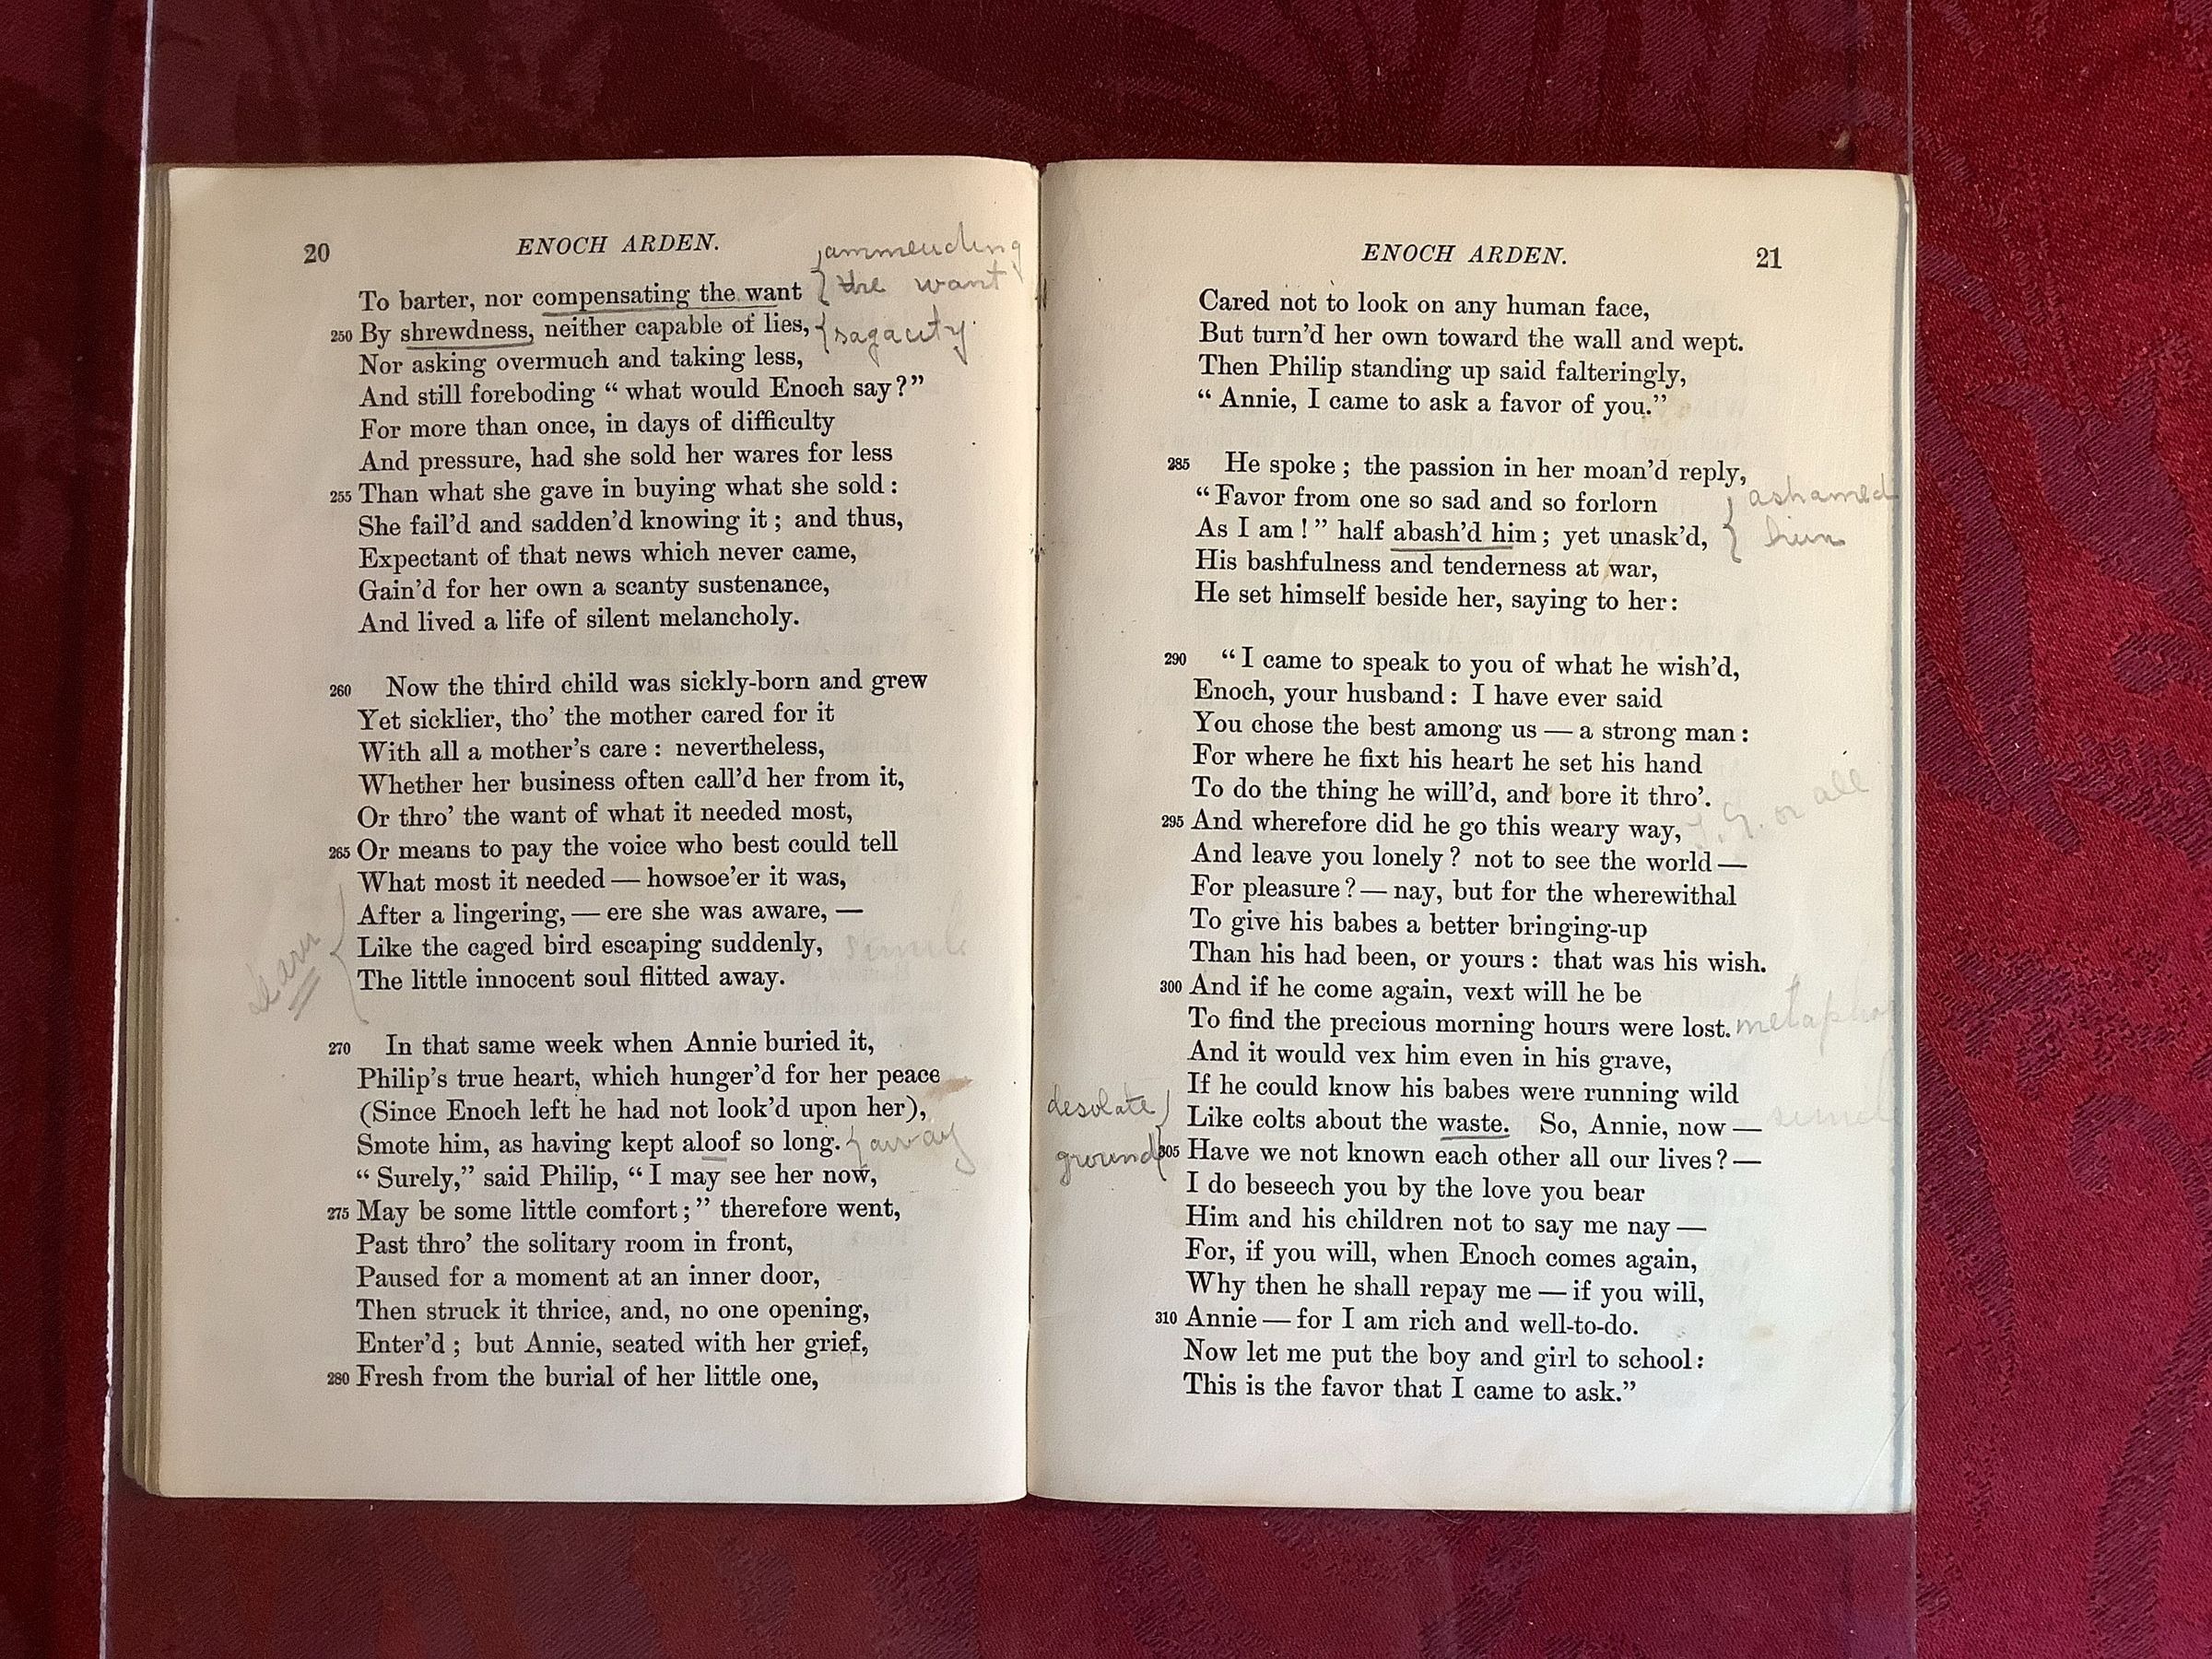 20
ENOCH ARDEN.
ammending
the want
To barter, nor compensating the want
250 By shrewdness, neither capable of lies, sagacity
Nor asking overmuch and taking less,
And still foreboding “ what would Enoch say?”
For more than once, in days of difficulty
And pressure, had she sold her wares for less
255 Than what she gave in buying what she sold :
She fail’d and sadden’d knowing it ; and thus,
Expectant of that news which never came,
Gain’d for her own a scanty sustenance,
And lived a life of silent melancholy.
260 Now the third child was sickly-born and grew
Yet sicklier, tho’ the mother cared for it
With all a mother’s care : nevertheless,
Whether her business often call’d her from it,
Or thro’ the want of what it needed most,
265 Or means to pay the voice who best could tell
What most it needed — howsoe’er it was,
After a lingering, — ere she was aware, —
Like the caged bird escaping suddenly, simile
learn
The little innocent soul flitted away.
270 In that same week when Annie buried it,
Philip’s true heart, which hunger’d for her peace
(Since Enoch left he had not look’d upon her),
Smote him, as having kept aloof so long. away
“ Surely,” said Philip, “ I may see her now,
275 May be some little comfort ; ” therefore went,
Past thro’ the solitary room in front,
Paused for a moment at an inner door,
Then struck it thrice, and, no one opening,
Enter’d ; but Annie, seated with her grief,
280 Fresh from the burial of her little one,
ENOCH ARDEN.
21
Cared not to look on any human face,
But turn’d her own toward the wall and wept.
Then Philip standing up said falteringly,
“ Annie, I came to ask a favor of you.”
285 He spoke ; the passion in her moan’d reply,
“ Favor from one so sad and so forlorn ashamed
As I am ! ” half abash’d him ; yet unask’d, him
His bashfulness and tenderness at war,
He set himself beside her, saying to her :
290 “ I came to speak to you of what he wish’d,
Enoch, your husband : I have ever said
You chose the best among us — a strong man :
For where he fixt his heart he set his hand
To do the thing he will’d, and bore it thro’.
295 And wherefore did he go this weary way, or all
And leave you lonely ? not to see the world —
For pleasure ? — nay, but for the wherewithal
To give his babes a better bringing-up
Than his had been, or yours : that was his wish.
300 And if he come again, vext will he be
To find the precious morning hours were lost. metaphor
And it would vex him even in his grave,
If he could know his babes were running wild
desolate
Like colts about the waste. So, Annie, now — simil
ground
305 Have we not known each other all our lives ? —
I do beseech you by the love you bear
Him and his children not to say me nay —
For, if you will, when Enoch comes again,
Why then he shall repay me — if you will,
310 Annie — for I am rich and well-to-do.
Now let me put the boy and girl to school :
This is the favor that I came to ask.”